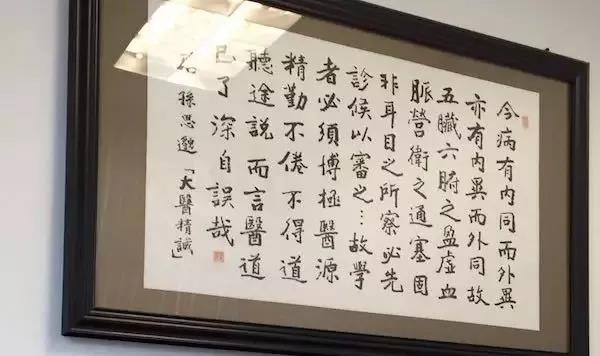 今病有内同而外異
亦有内異而外同故
五臟六腑之盈虛血
脈營衛之通塞固
非耳目之所察必先
診候以審之…故学
者必須博極醫源
精勤不倦不得道
聽途說而言醫道
已了深自誤哉
孫思邈「大醫精誠」